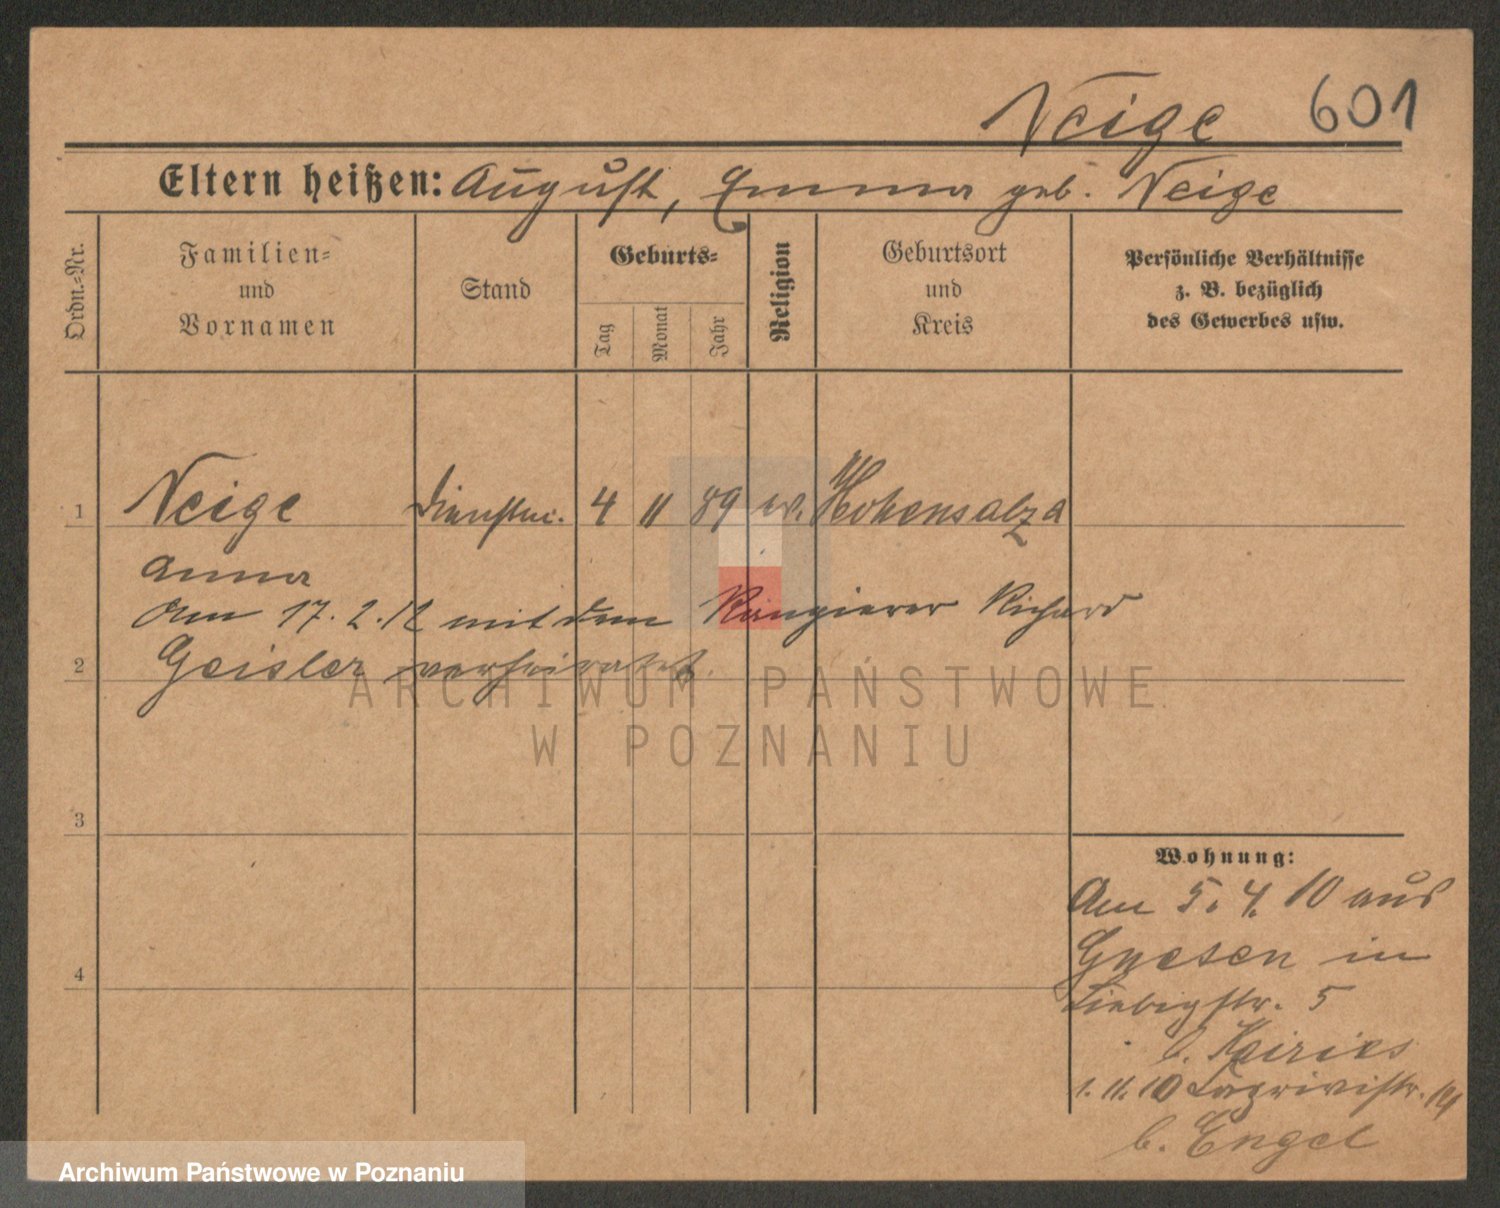 Neige 601
Eltern heißen: August, Emma geb. Neige
Ordn.-Nr.
Familien-
und
Vornamen
Stand
Geburts-
Tag
Monat
Jahr
Religion
Geburtsort
und
Kreis
Persönliche Verhältnisse
z. B. bezüglich
des Gewerbes usw.
1 Neige Dienstm. 4 11 89 ev. Hohensalza
Anna
Am 17.2.12 mit dem Rangierer Richard
2 Geisler verheiratet.
3
4
Wohnung:
Am 5.4.10 aus
Gnesen in
Liebigstr. 5
b. Kairies
1.11.10
b. Engel
ARCHIWUM PAŃSTWOWE
W POZNANIU
Archiwum Państwowe w Poznaniu